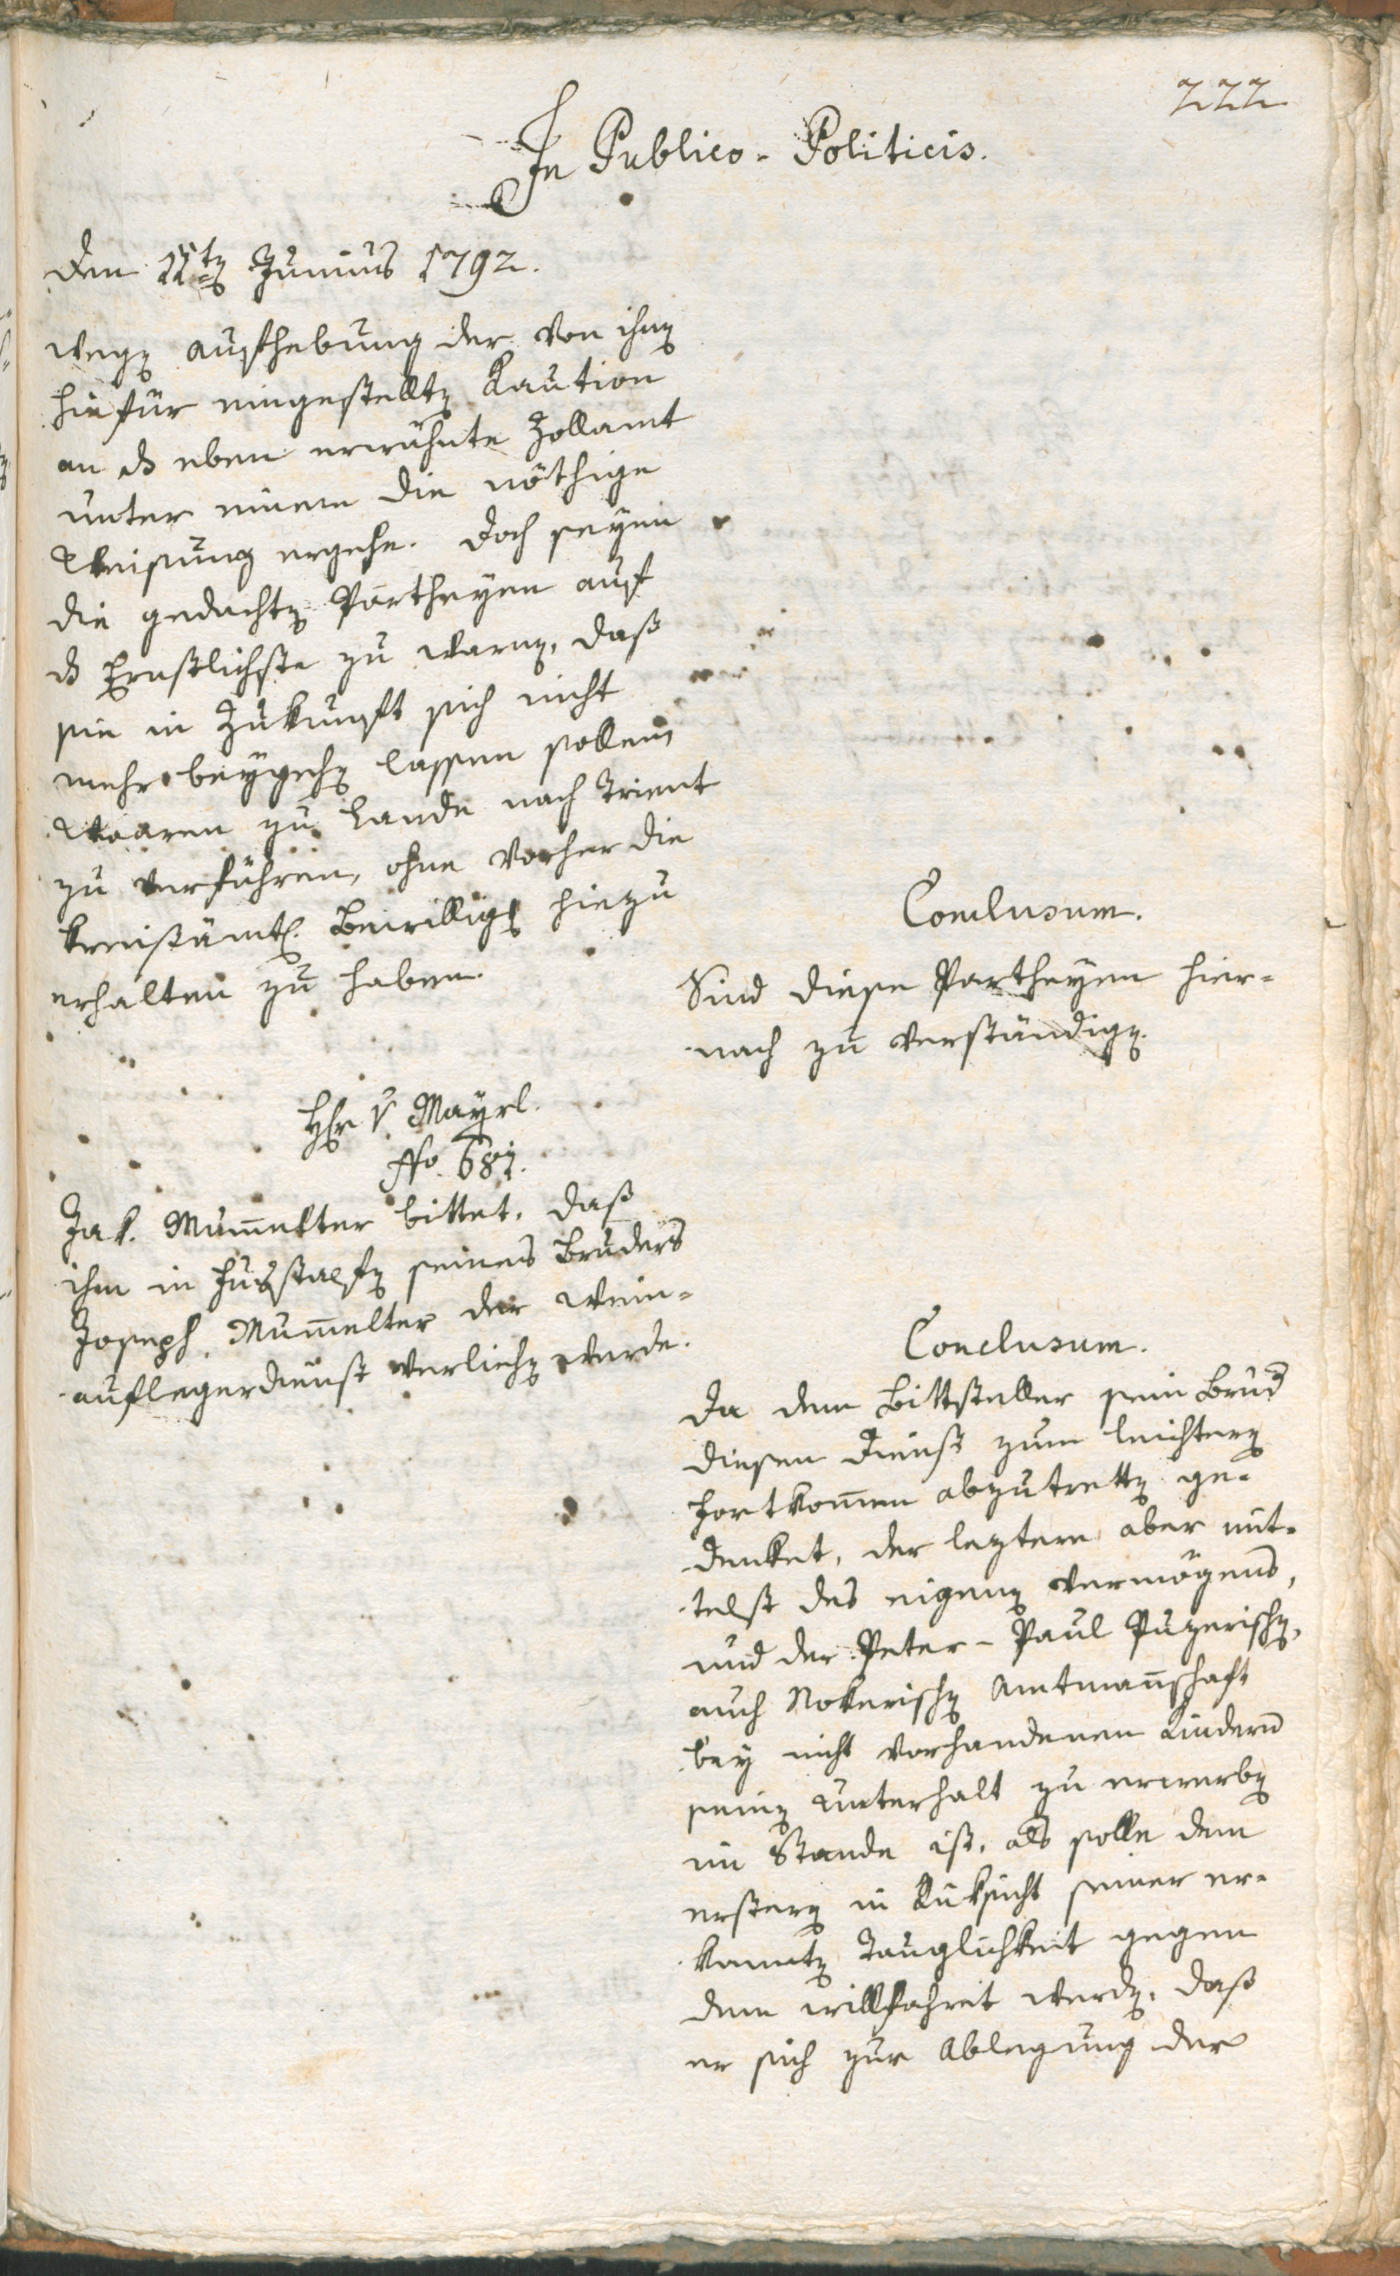 222
In Publico-Politicis.
Den 11ten Junius 1792.
wegen aufhebung der von ihnen
hiefür eingestellten Kaution
an das eben erwähnte Zollamt
unter einem die nöthige
Weisung ergehe. Doch seyen
die gedachten Partheyen auf
das Ernstlichste zu warnen, daß
sie in Zukunft sich nicht
mehr beygehen lassen sollen,
Waaren zu Lande nach Trient
zu verführen, ohne vorher die
kreisämtl. Bewillig. hiezu
erhalten zu haben.
Conclusum.
Sind diese Partheyen hier-
nach zu verständigen.
Hr v. Mayrl.
No. 681.
Jak. Mum̅elter bittet, daß
ihm in seines Bruders
Joseph Mum̅elter der Wein-
auflegerdienst verliehen werde.
Conclusum.
Da dem Bittsteller sein Brud
diesen Dienst zum leichtern
Fortkom̅en abzutretten ge-
denket, der leztere aber mit-
telst des eigenen Vermögens,
und der Peter-Paul Puzerischen,
auch Nokerischen Amtman̅schaft
bey nicht vorhandenen Kindern
seinen Unterhalt zu erwerben
im Stande ist, als solle dem
erstern in Rüksicht seiner er-
kannten Tauglichkeit gegen
dem willfahrt werden, daß
er sich zur Ablegung der